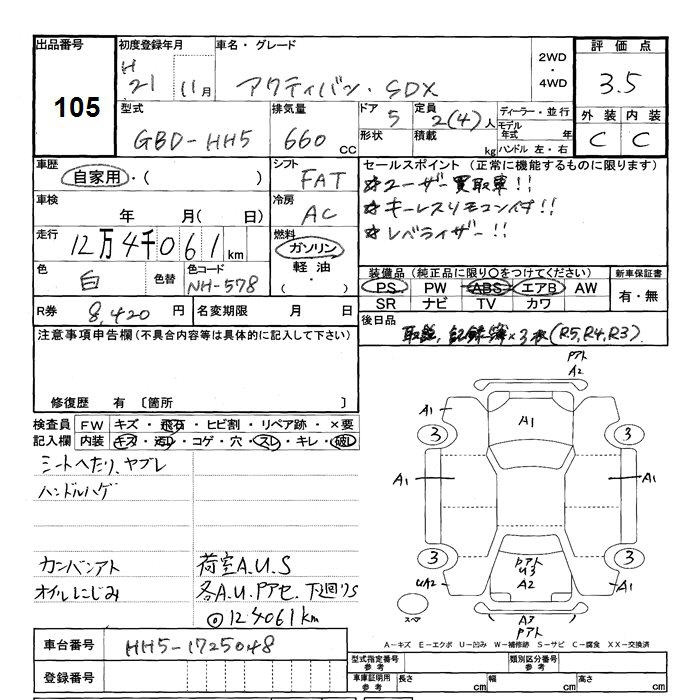 出品番号 初度登録年月 車名・グレード 2WD・4WD 評価点
105 H21 11月 アクティバン・SDX 3.5
型式 排気量 ドア 定員 ディーラー・並行 外装 内装
GBD-HH5 660cc 5 2(4)人 モデル年式 年 C C
形状 積載 kg ハンドル 左・右
車歴 シフト セールスポイント (正常に機能するものに限ります)
自家用・( ) FAT ☆ユーザー買取車!!
車検 冷房 ☆キーレスリモコンイチ!!
年 月( 日) AC ☆レベライザー!!
走行 燃料
12万4千061km ガソリン
色 色替 色コード 軽油 装備品 (純正品に限り○をつけてください) 新車保証書
白 NH-578 ( ・ ) PS PW ABS エアB AW 有・無
R券 8,420円 名変期限 月 日 SR ナビ TV カワ
注意事項申告欄(不具合内容等は具体的に記入して下さい) 後日品 取説, 記録簿×3枚(R5,R4,R3)
修復歴 有 〔箇所 〕
検査員記入欄 FW キズ・飛石・ヒビ割・リペア跡・×要
内装 キズ・汚レ・コゲ・穴・スレ・キレ・破レ
シートへたり、ヤブレ
ハンドルハゲ
カンバンアト 荷室A.U.S
オイルにじみ 各A.U.Pアセ.下廻りS
◎124061km
Pアト
A2
A1 A1
3 3
A1 A1
3 3
Pアト
U3
A2
UA2 A1
スペア
A2
Pアト
A-キズ E-エクボ U-凹み W-補修跡 S-サビ C-腐食 XX-交換済
車台番号 HH5-1725048
登録番号
型式指定番号 参考 類別区分番号 参考
車庫証明用 参考 長さ cm 幅 cm 高さ cm